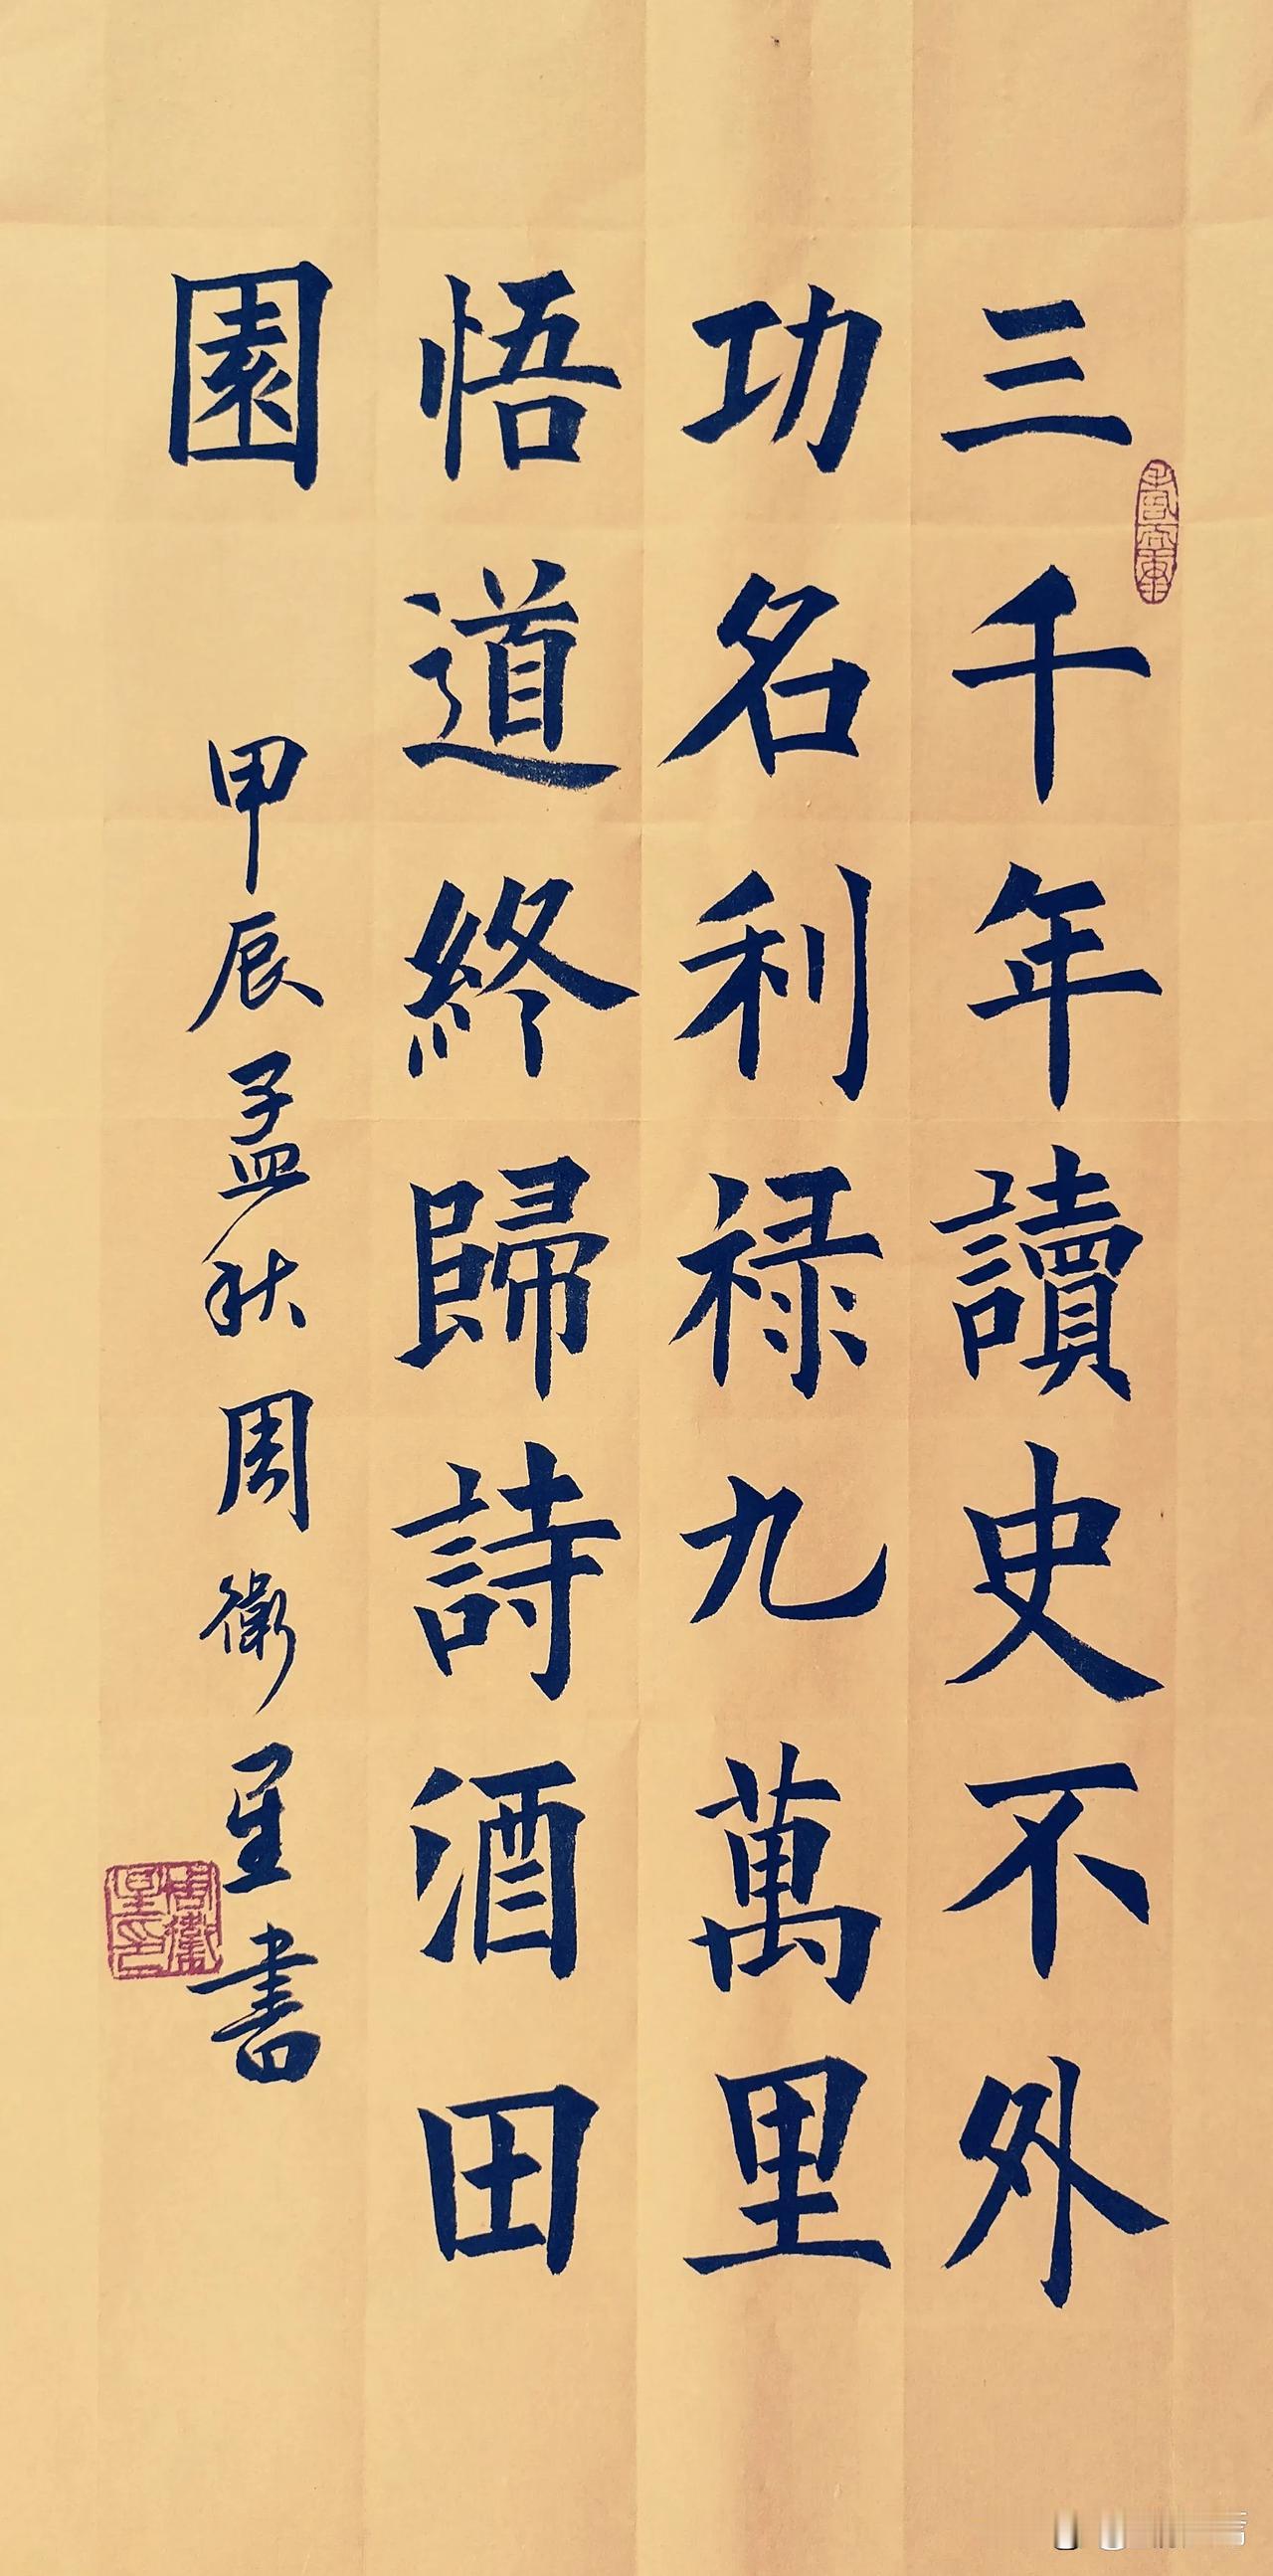 三千年讀史不外
功名利禄九萬里
悟道終歸詩酒田
園
甲辰孟秋周衛星書
周衛
星印